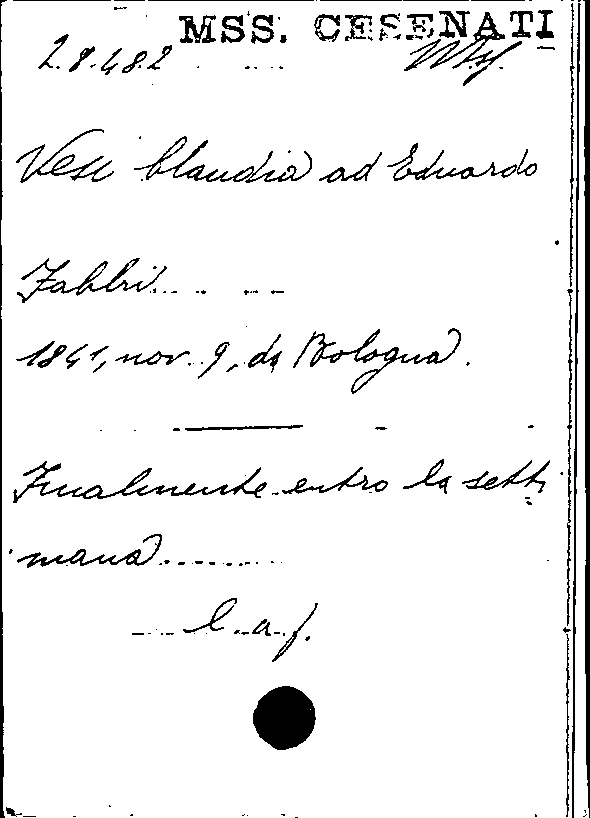 MSS. CESENATI
2.8.482
Vesi Claudia ad Eduardo
Fabbri
1841, nov. 9, da Bologna.
Finalmente entro la setti
mana
l. a. f.